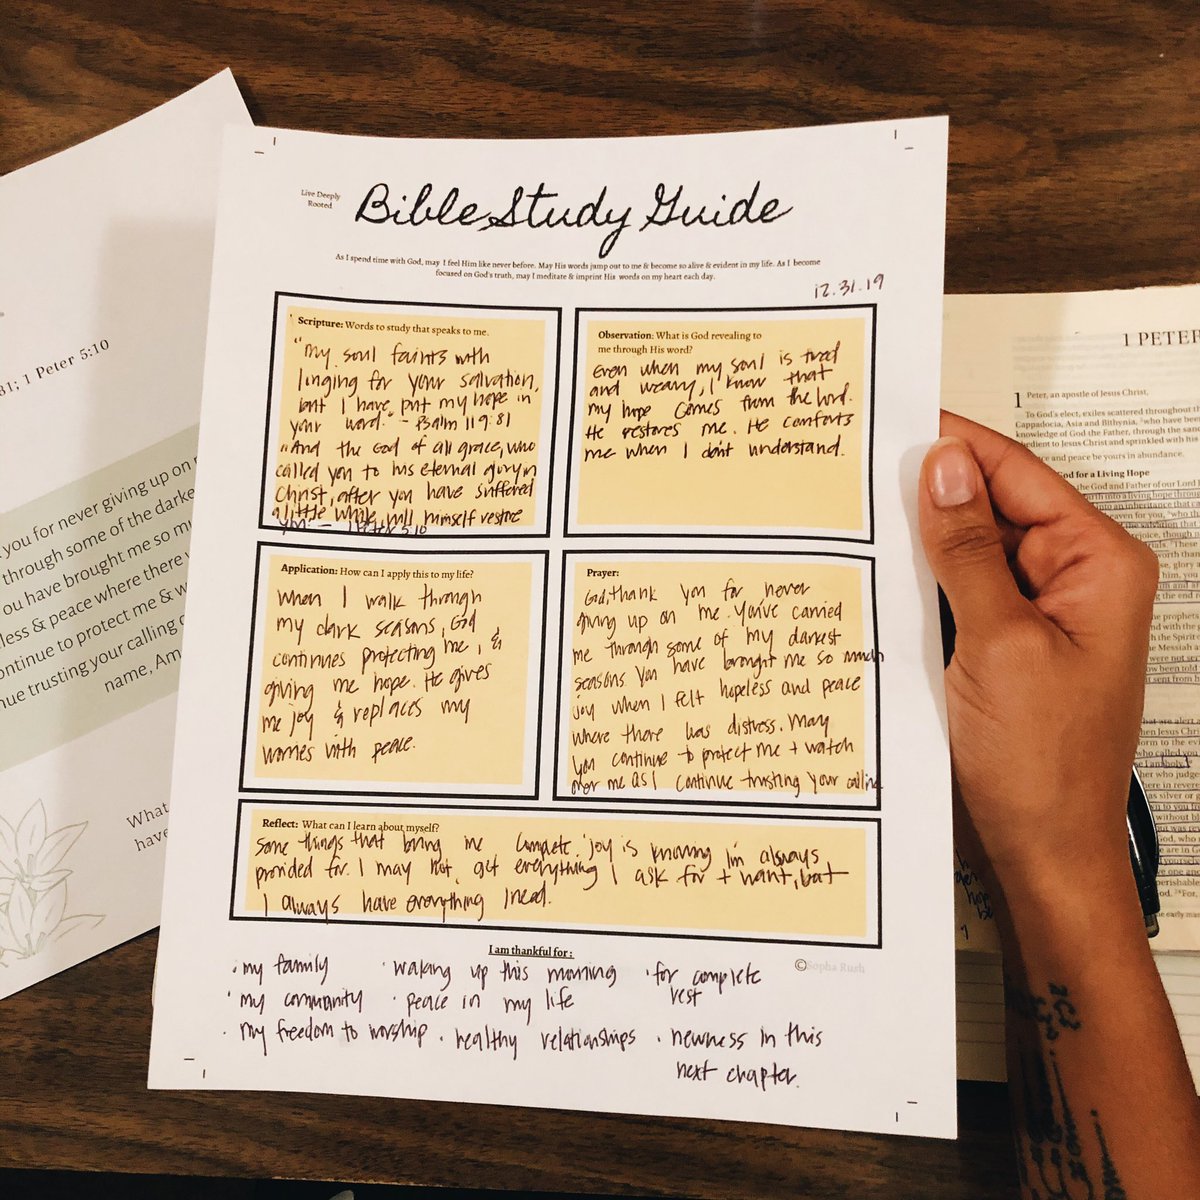 Live Deeply
Rooted
Bible Study Guide
As I spend time with God, may I feel Him like never before. May His words jump out to me & become so alive & evident in my life. As I become
focused on God's truth, may I meditate & imprint His words on my heart each day.
12.31.19
Scripture: Words to study that speaks to me.
"my soul faints with
longing for your salvation,
but I have put my hope in
your word." - Psalm 119:81
"And the God of all grace, who
called you to his eternal glory in
Christ, after you have suffered
a little while, will himself restore
you." - 1 Peter 5:10
Observation: What is God revealing to
me through His word?
Even when my soul is tired
and weary, I know that
my hope comes from the Lord.
He restores me. He comforts
me when I don't understand.
Application: How can I apply this to my life?
When I walk through
my dark seasons, God
continues protecting me, &
giving me hope. He gives
me joy & replaces my
worries with peace.
Prayer:
God, thank you for never
giving up on me. You've carried
me through some of my darkest
seasons. You have brought me so much
joy when I felt hopeless and peace
where there was distress. May
you continue to protect me + watch
over me as I continue trusting your calling
Reflect: What can I learn about myself?
Some things that bring me complete joy is knowing I'm always
provided for. I may not get everything I ask for + want, but
I always have everything I need.
I am thankful for:
· my family · waking up this morning · for complete
rest
· my community · peace in my life
· my freedom to worship · healthy relationships · newness in this
next chapter.
©Sopha Rush
31; 1 Peter 5:10
you for never giving up on
through some of the darke
ou have brought me so mu
less & peace where there
ontinue to protect me & w
nue trusting your calling
name, Am
What
have
1 PETER
1 Peter, an apostle of Jesus Christ,
To God's elect, exiles scattered throughout
Cappadocia, Asia and Bithynia, who have been
knowledge of God the Father, through the sanc
bedient to Jesus Christ and sprinkled with hi
ce and peace be yours in abundance.
God for a Living Hope
the God and Father of our Lord